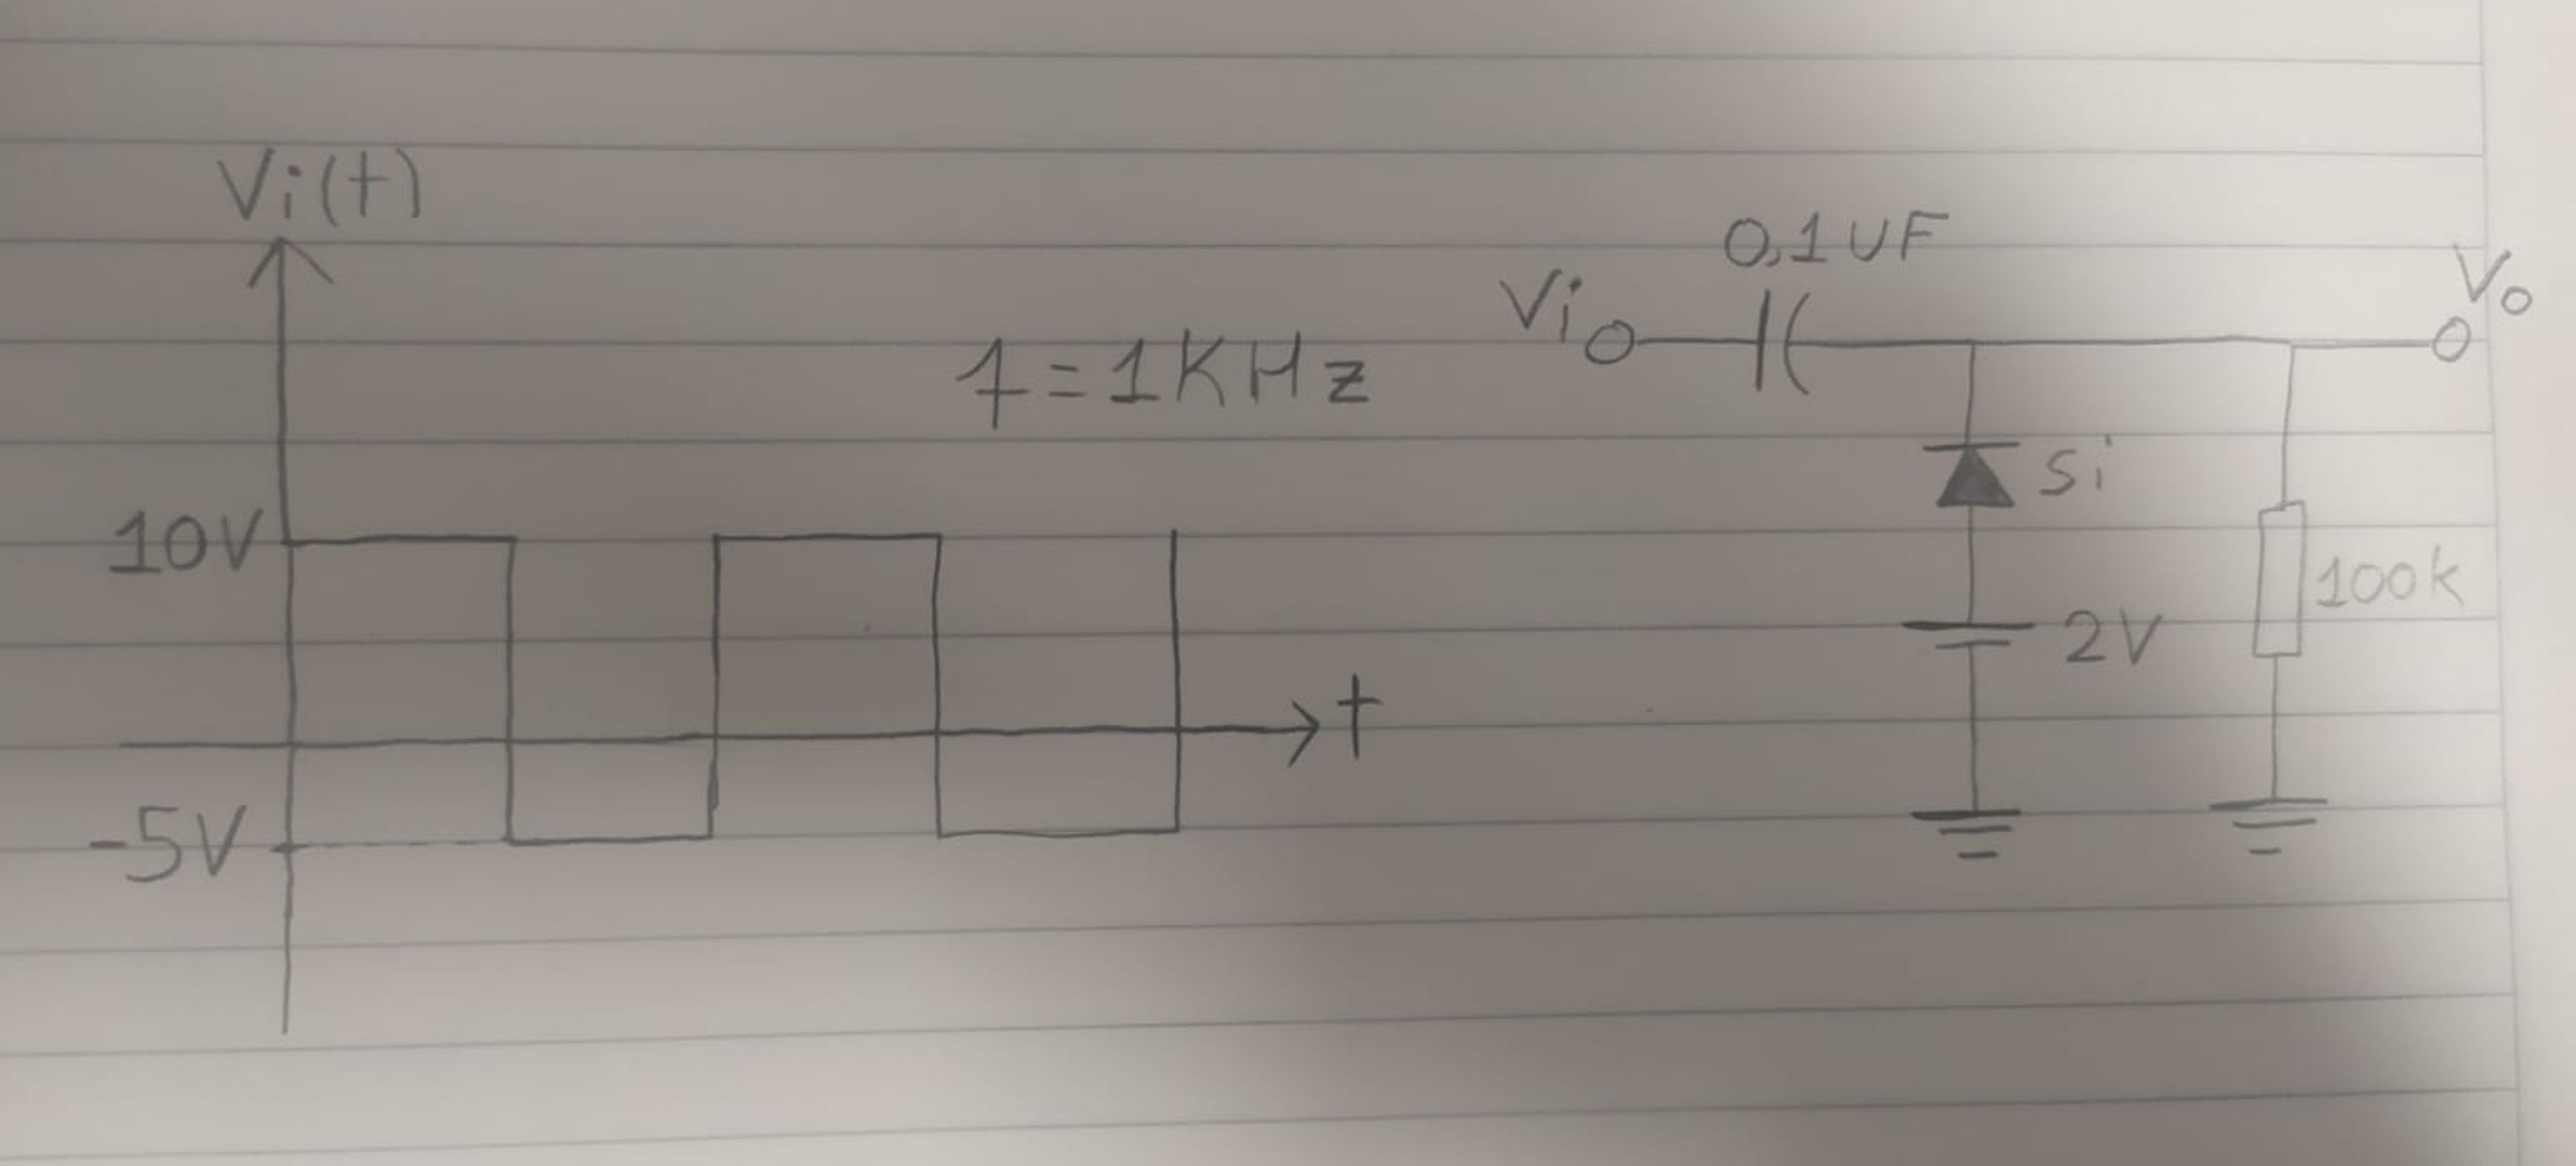 Vi(t)
0,1UF
Vi
Vo
f=1KHz
Si
10V
100k
2V
t
-5V